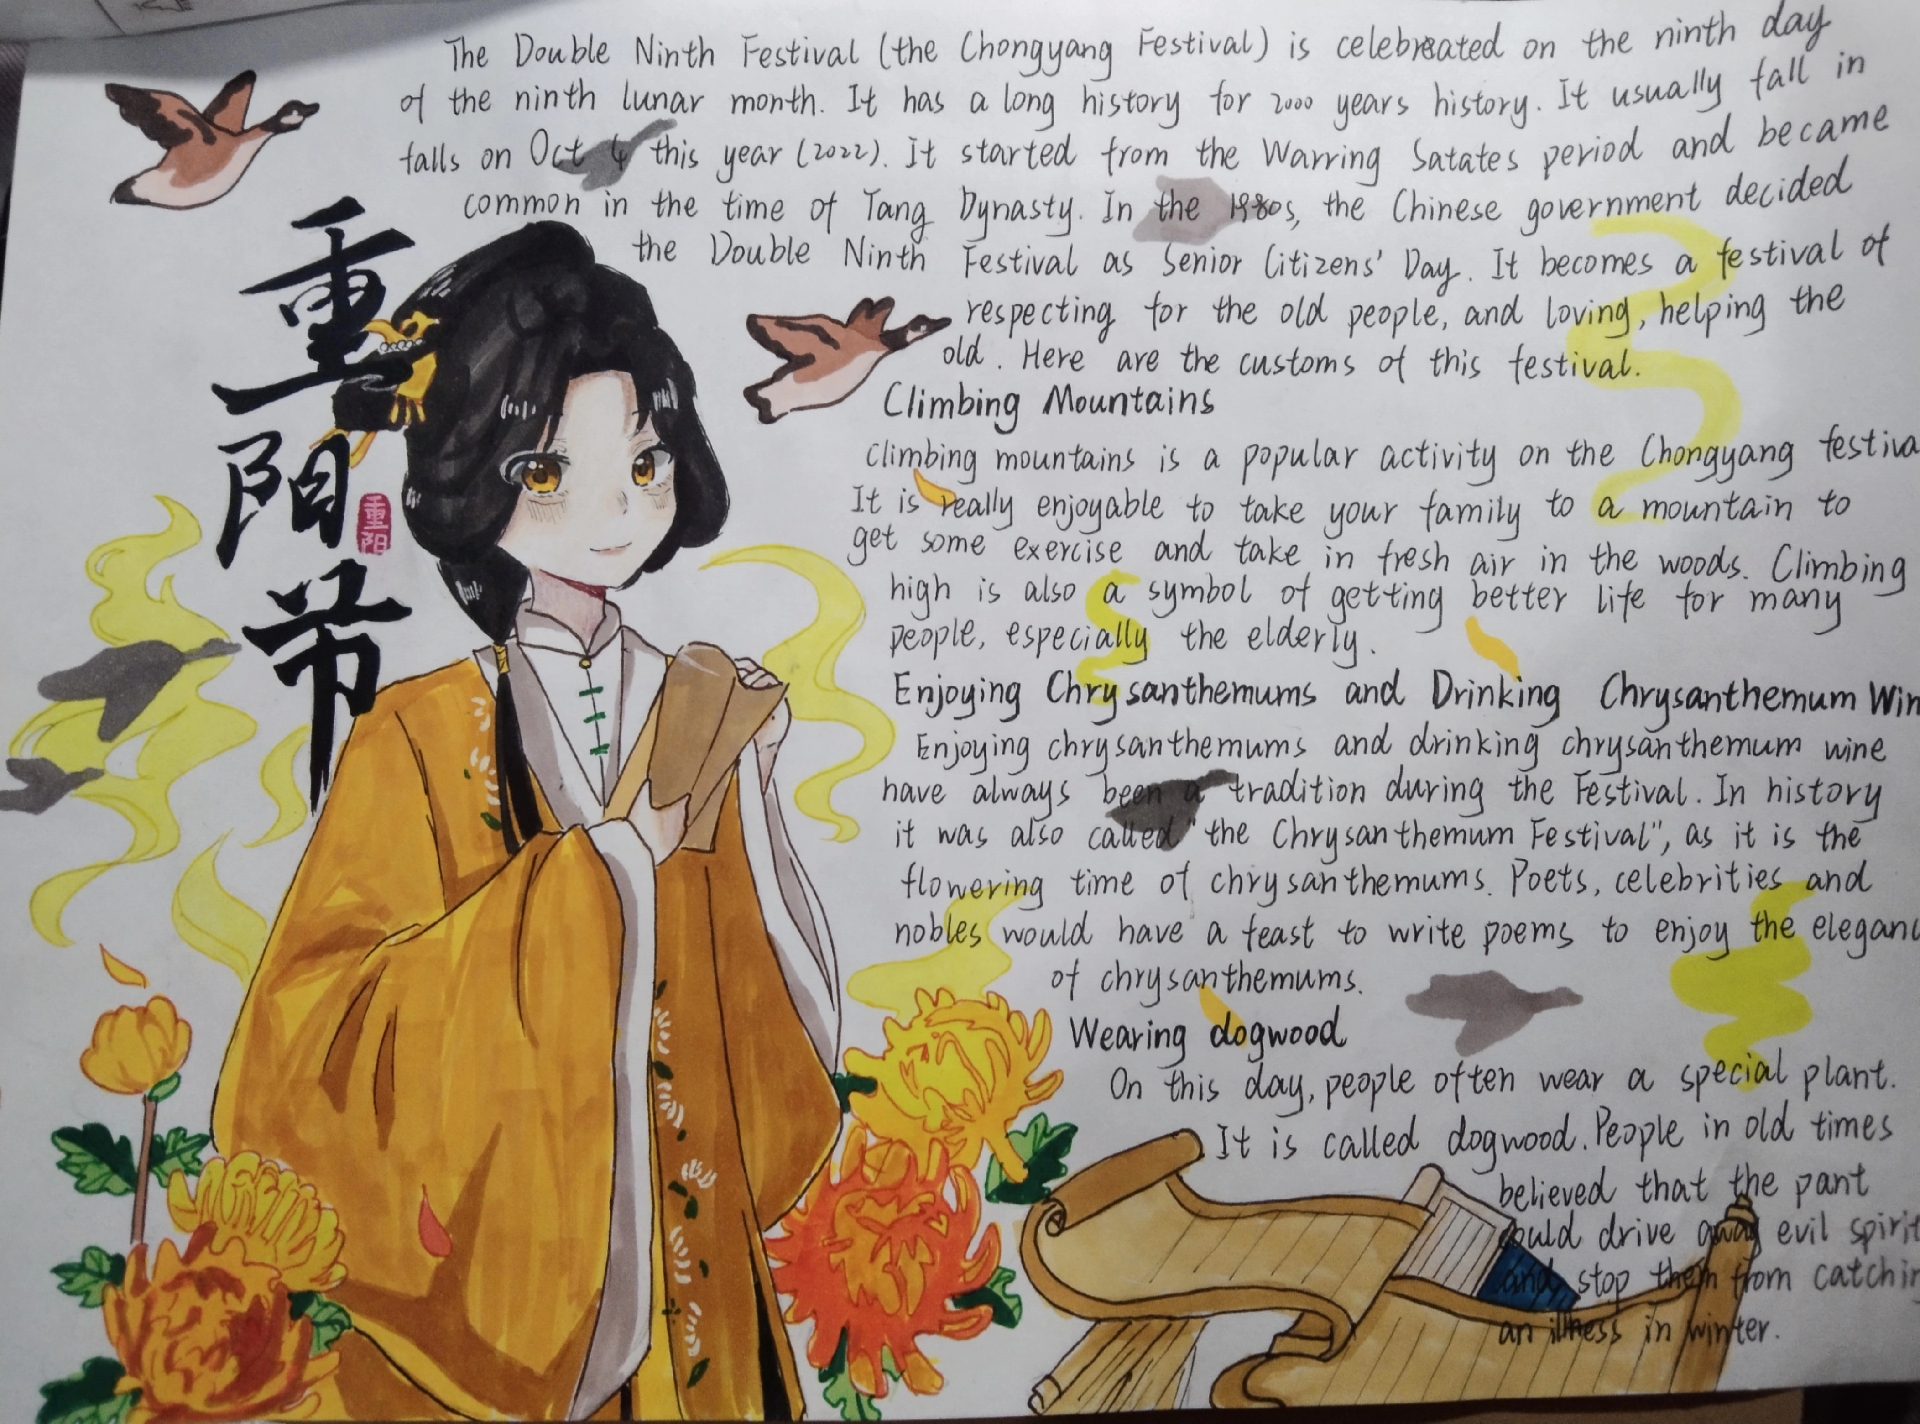 The Double Ninth Festival (the Chongyang Festival) is celebreated on the ninth day
of the ninth lunar month. It has a long history for 2000 years history. It usually fall in
falls on Oct 4 this year (2022). It started from the Warring Satates period and became
common in the time of Tang Dynasty. In the 1980s, the Chinese government decided
the Double Ninth Festival as Senior Citizens' Day. It becomes a festival of
respecting for the old people, and loving, helping the
old. Here are the customs of this festival.
重阳节
重阳
Climbing Mountains
Climbing mountains is a popular activity on the Chongyang festiva
It is really enjoyable to take your family to a mountain to
get some exercise and take in fresh air in the woods. Climbing
high is also a symbol of getting better life for many
people, especially the elderly.
Enjoying Chrysanthemums and Drinking Chrysanthemum Win
Enjoying chrysanthemums and drinking chrysanthemum wine
have always been a tradition during the Festival. In history
it was also called "the Chrysanthemum Festival", as it is the
flowering time of chrysanthemums. Poets, celebrities and
nobles would have a feast to write poems to enjoy the eleganc
of chrysanthemums.
Wearing dogwood
On this day, people often wear a special plant.
It is called dogwood. People in old times
believed that the pant
could drive away evil spirit
and stop them from catchin
an illness in winter.